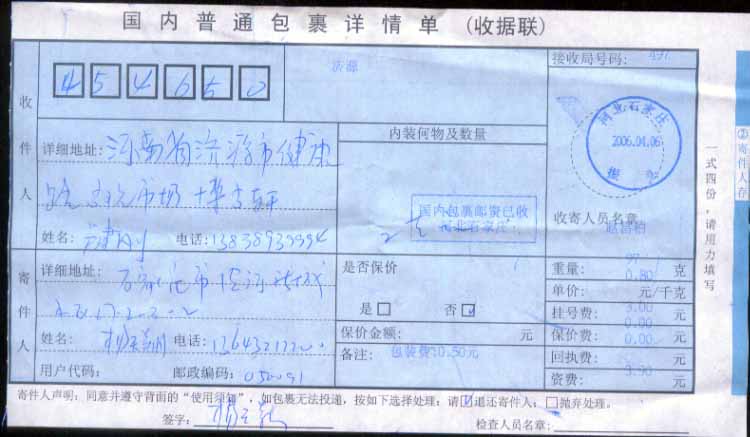 国内普通包裹详情单 (收据联)
接收局号码:
454650
济源
收件人
详细地址: 河南省济源市健康
路 文化市场 博古轩
姓名: 电话: 13838932994
内装何物及数量
国内包裹邮资已收
河北石家庄
河北石家庄
2006.04.06
收寄人员名章:
寄件人
详细地址: 石家庄市
姓名: 电话:
用户代码: 邮政编码: 050091
是否保价
是 否
保价金额: 元
备注: 包装费:0.50元
重量: 克
0.80
单价: 元/千克
挂号费: 3.00 元
保价费: 0.00 元
回执费: 0.00 元
资费: 3.90 元
一式四份,请用力填写
②寄件人存
寄件人声明: 同意并遵守背面的“使用须知”,如包裹无法投递,按如下选择处理: 请 退还寄件人; 抛弃处理。
签字:
检查人员名章: